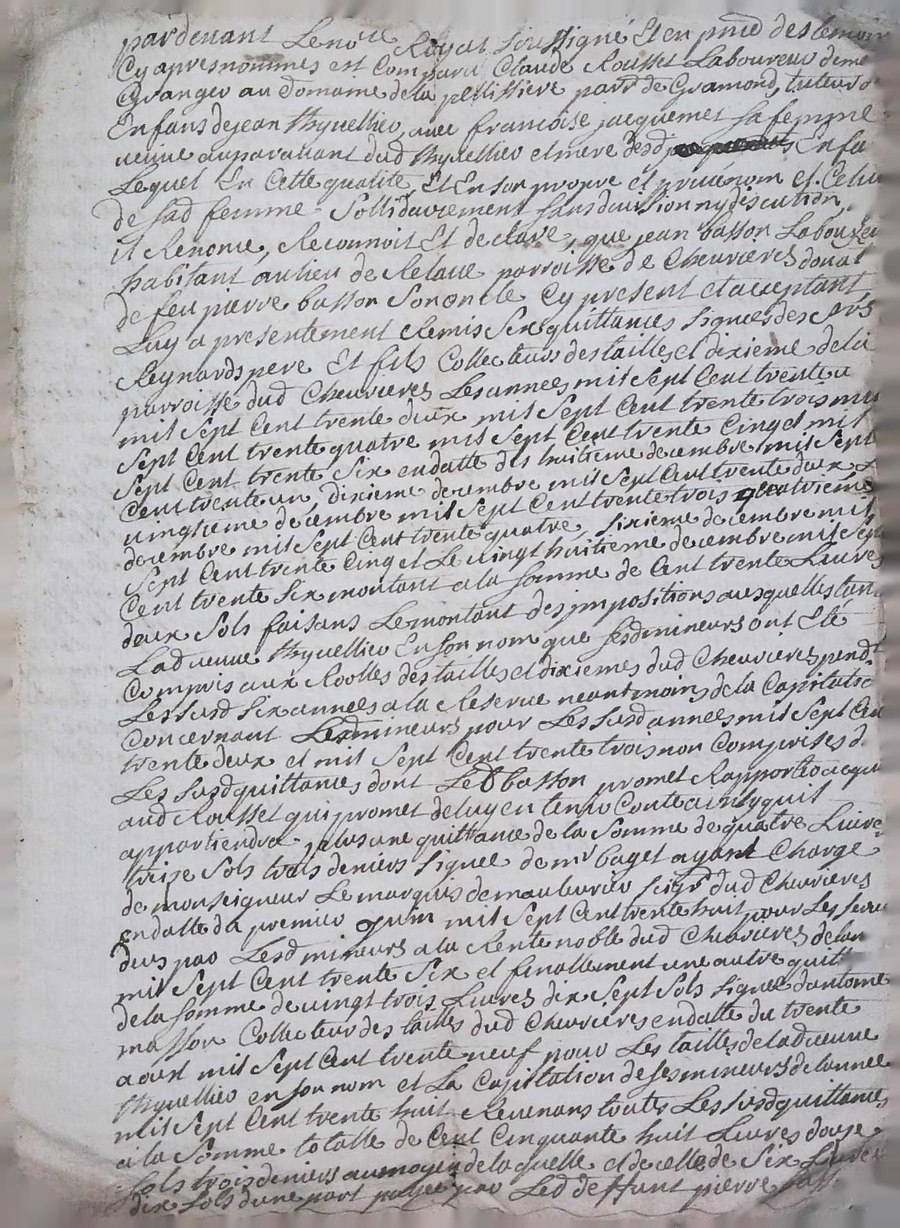 pardevant Le no.re Royal soussigné Et en pnce des temoin
Cy apres nommes est Comparu Claude Rousset Laboureur deme
Granger au Domaine de la pellissiere parr de Gramond, tuteur d
Enfans de jean thyvellier, avec francoise jacquemet sa femme
veuve auparavant dud thyvellier et mere desd Enfa
Lequel En Cette qualité, Et En son propre et privé nom et Celui
de sad femme sollidairement sans division ny discution,
il Renonce, Reconnoit Et declare, que jean basson Laboureu
habitant au lieu de Relave parroisse de Chevrieres donat
de feu pierre basson son oncle Cy present et acceptant
Luy a presentement Remis Six quittances signées des srs
Reynards pere Et fils Collecteurs des tailles et dixieme de la
parroisse dud Chevrieres Les années mil sept Cent trente u
mil sept Cent trente deux mil sept Cent trente trois mil
sept Cent trente quatre mil sept Cent trente Cinq et mil
sept Cent trente Six en datte des huitieme decembre mil sept
Cent trente un dixieme decembre mil sept Cent trente deux
vingtieme decembre mil sept Cent trente trois quatrieme
decembre mil sept Cent trente quatre, sixieme decembre mil
sept Cent trente Cinq et Le vingt huitieme decembre mil sep
Cent trente Six montant a la somme de Cent trente Livres
deux sols faisans Le montant des impositions ausquelles tan
Lad veuve thyvellier En son nom que sesd mineurs ont Eté
Compris aux Roolles des tailles et dixiemes dud Chevrieres pendt
Les susd Six années a la Reserve neantmoins de la Capitatio
Concernant Lesd mineurs pour Les susd années mil sept Cen
trente deux et mil sept Cent trente trois non Comprises d
Les susd quittances dont Led basson promet Rapporter acqui
aud Rousset qui promet de luy en tenir Conte ainsy quil
appartiendra, plus une quittance de la somme de quatre Livre
treize sols trois deniers signée de mr baget ayant Charge
de monseigneur Le marquis de maulevrier seigr dud Chevrieres
en datte du premier juin mil sept Cent trente huit pour Les servi
deus par Lesd mineurs a la Rente noble dud Chevrieres de lan
mil sept Cent trente Six et finallement une autre quit
de la somme de vingt trois Livres dix sept sols signée dantoine
masson Collecteur des tailles dud Chevrieres en datte du trente
aoust mil sept Cent trente neuf pour Les tailles de lad veuve
thyvellier en son nom et La Capitation de ses mineurs de lannee
mil sept Cent trente huit Revenans toutes Les susd quittances
a la somme totalle de Cent Cinquante huit Livres douze
sols trois deniers au moyen de laquelle et de celle de Six Livres
dix sols dune part payée par Led deffunt pierre bass